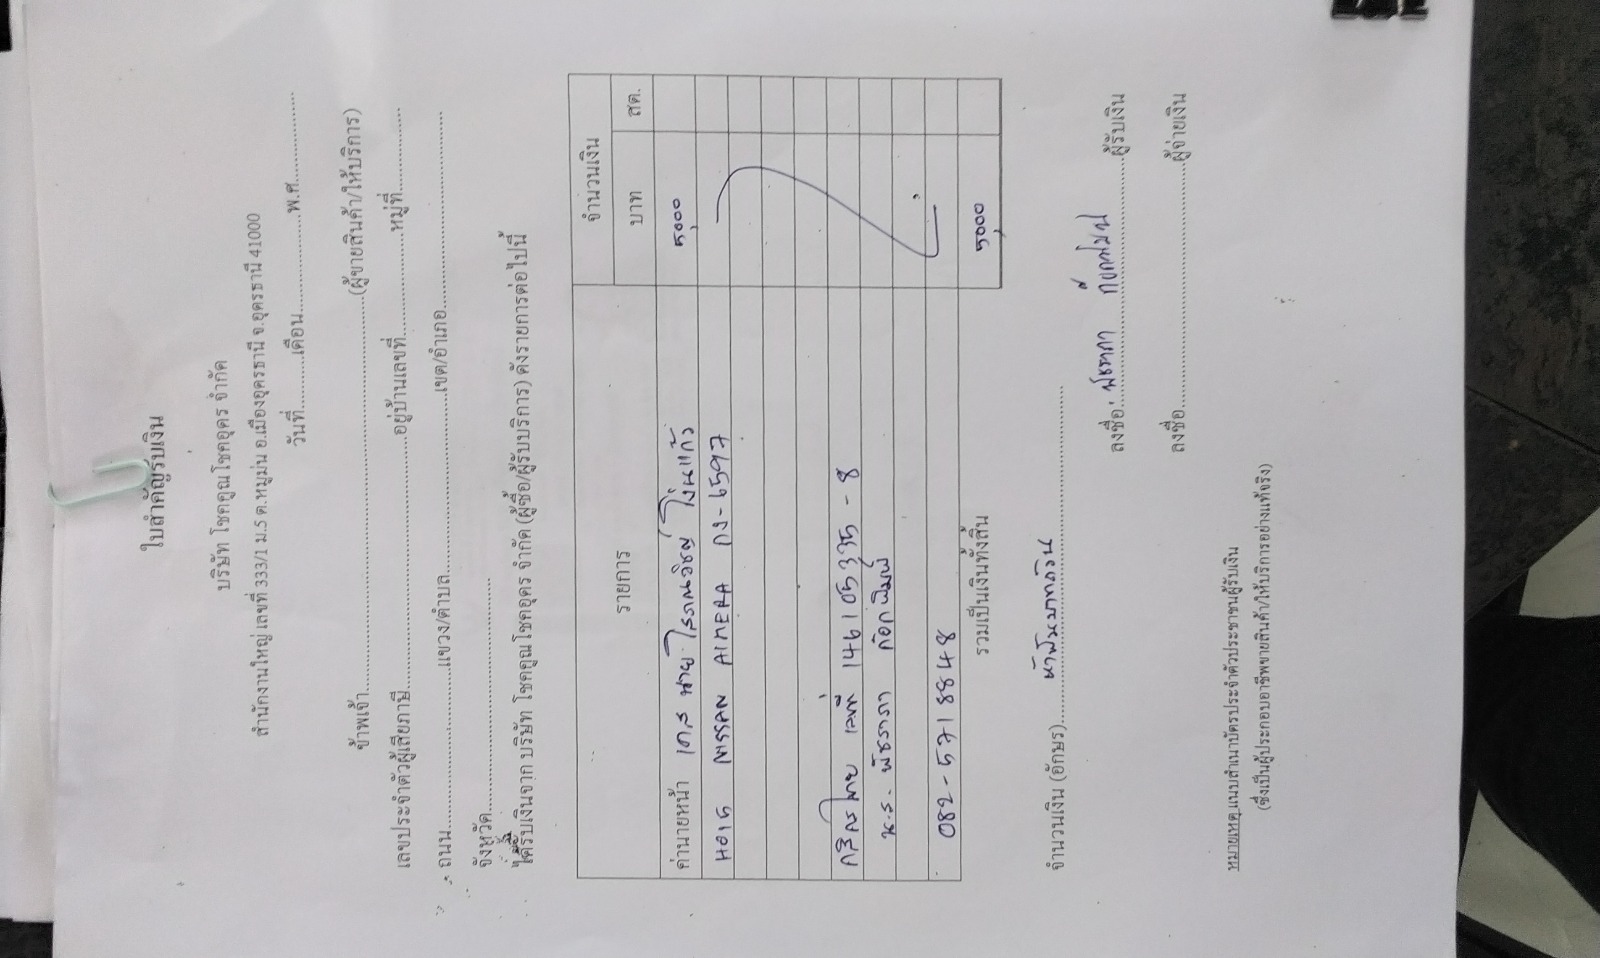 ใบสำคัญรับเงิน
บริษัท โชคคูณโชคอุดร จำกัด
สำนักงานใหญ่ เลขที่ 333/1 ม.5 ต.หมูม่น อ.เมืองอุดรธานี จ.อุดรธานี 41000
วันที่............เดือน....................พ.ศ....................
ข้าพเจ้า....................................................(ผู้ขายสินค้า/ให้บริการ)
เลขประจำตัวผู้เสียภาษี....................................อยู่บ้านเลขที่....................หมู่ที่....................
ถนน....................แขวง/ตำบล....................เขต/อำเภอ....................
จังหวัด....................
ได้รับเงินจาก บริษัท โชคคูณโชคอุดร จำกัด (ผู้ซื้อ/ผู้รับบริการ) ดังรายการต่อไปนี้
รายการ จำนวนเงิน
บาท สต.
ค่านายหน้า เคส นาย 5,000
NISSAN ALMERA กง-6597
กสิกรไทย เลขที่ 146 1 05335 - 8
น.ส. พัชราภา ก้อกพิมพ์
082-571 8848
รวมเป็นเงินทั้งสิ้น 5,000
จำนวนเงิน (อักษร) ห้าพันบาทถ้วน
ลงชื่อ พัชราภา ผู้รับเงิน
ลงชื่อ....................ผู้จ่ายเงิน
หมายเหตุ แนบสำเนาบัตรประจำตัวประชาชนผู้รับเงิน
(ซึ่งเป็นผู้ประกอบอาชีพขายสินค้า/ให้บริการอย่างแท้จริง)